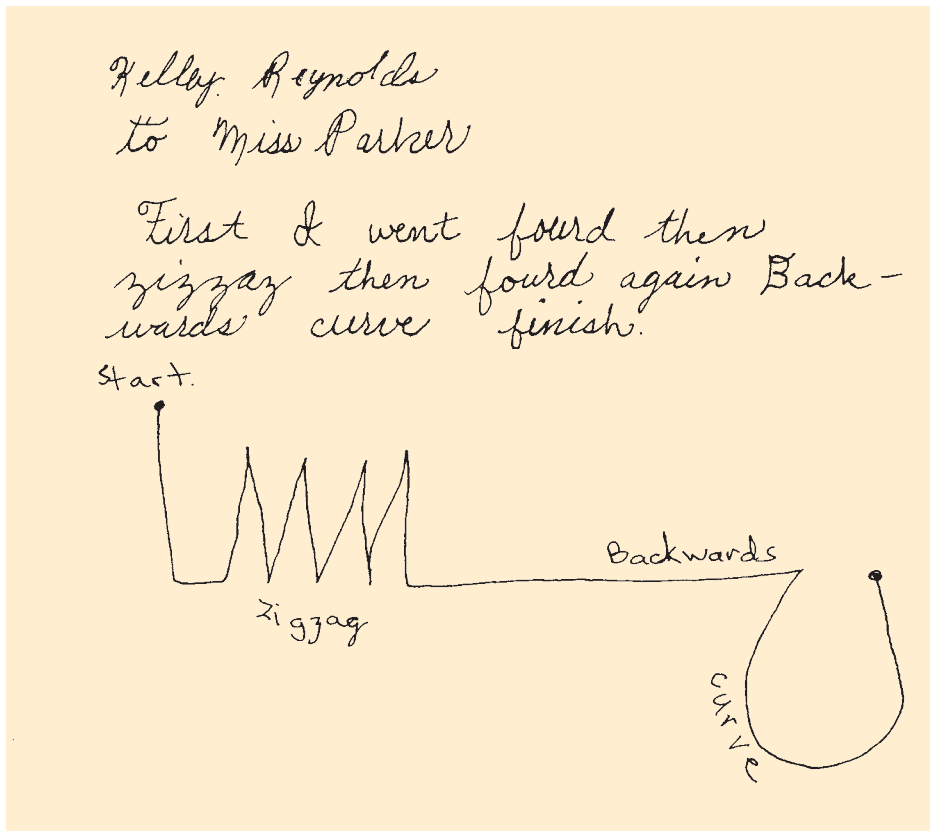 Kelley Reynolds
to Miss Parker
First I went fourd then
zizzaz then fourd again Back-
wards curve finish.
Start.
Backwards
Zigzag
curve